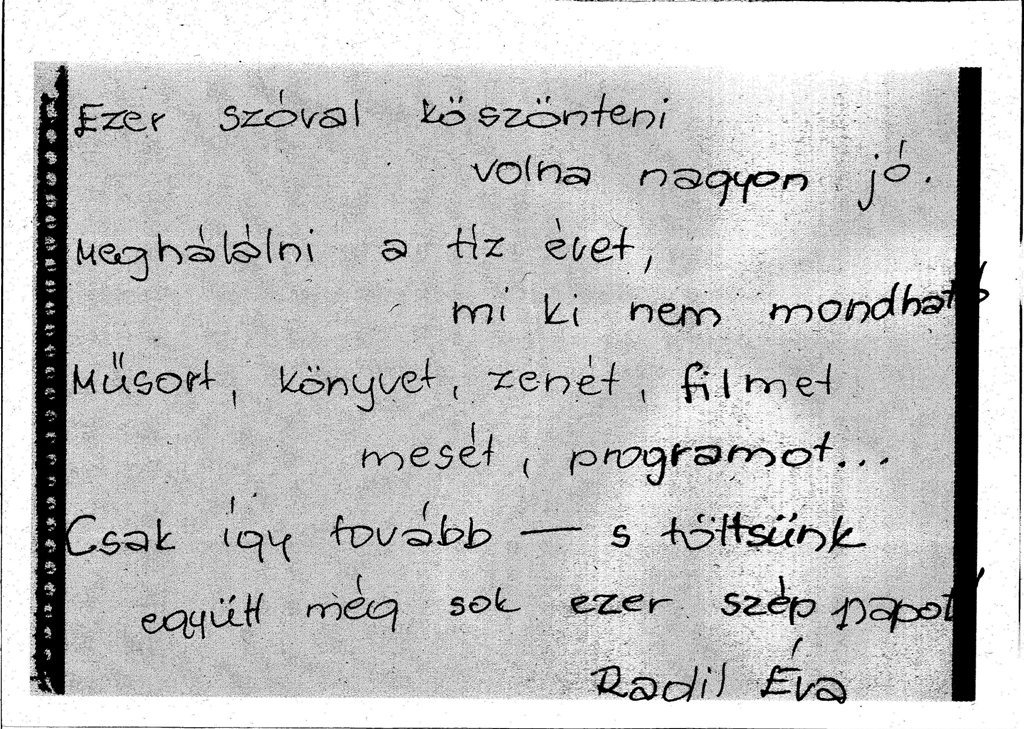 Ezer szóval köszönteni
volna nagyon jó.
Meghálálni a tíz évet,
mi ki nem mondható
Műsort, könyvet, zenét, filmet
mesét, programot...
Csak így tovább — s töltsünk
együtt még sok ezer szép napot!
Radil Éva